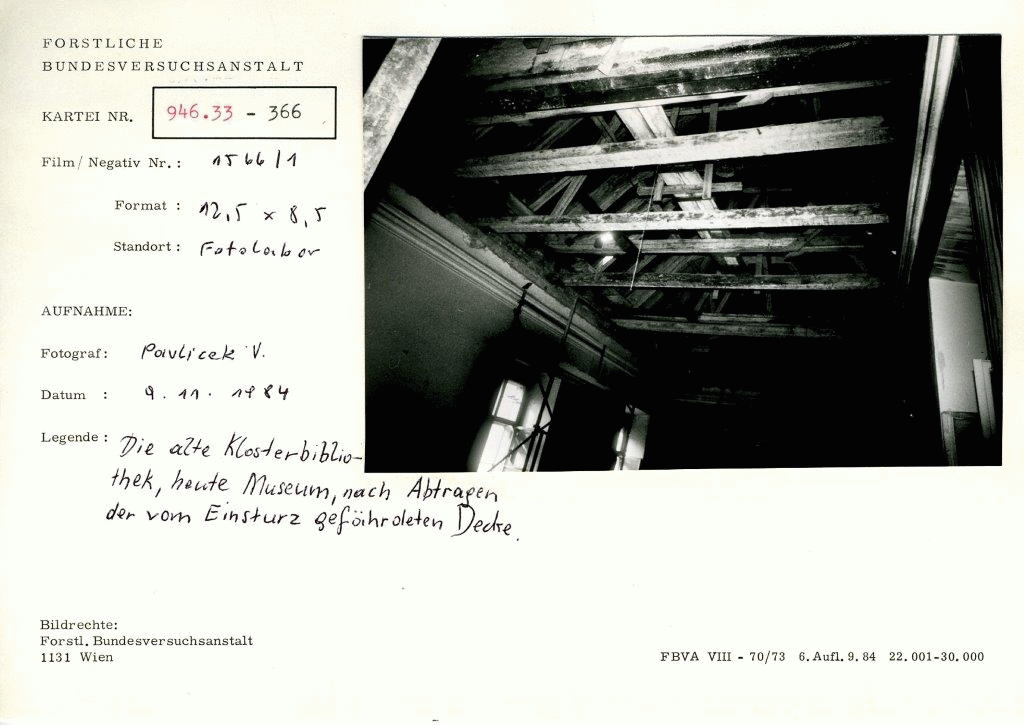 FORSTLICHE
BUNDESVERSUCHSANSTALT
KARTEI NR. 946.33 - 366
Film/Negativ Nr.: 1566/1
Format : 12,5 x 8,5
Standort: Fotolabor
AUFNAHME:
Fotograf: Pavlicek V.
Datum : 9. 11. 1984
Legende: Die alte Klosterbiblio-
thek, heute Museum, nach Abtragen
der vom Einsturz gefährdeten Decke.
Bildrechte:
Forstl. Bundesversuchsanstalt
1131 Wien
FBVA VIII - 70/73 6. Aufl. 9. 84 22.001-30.000